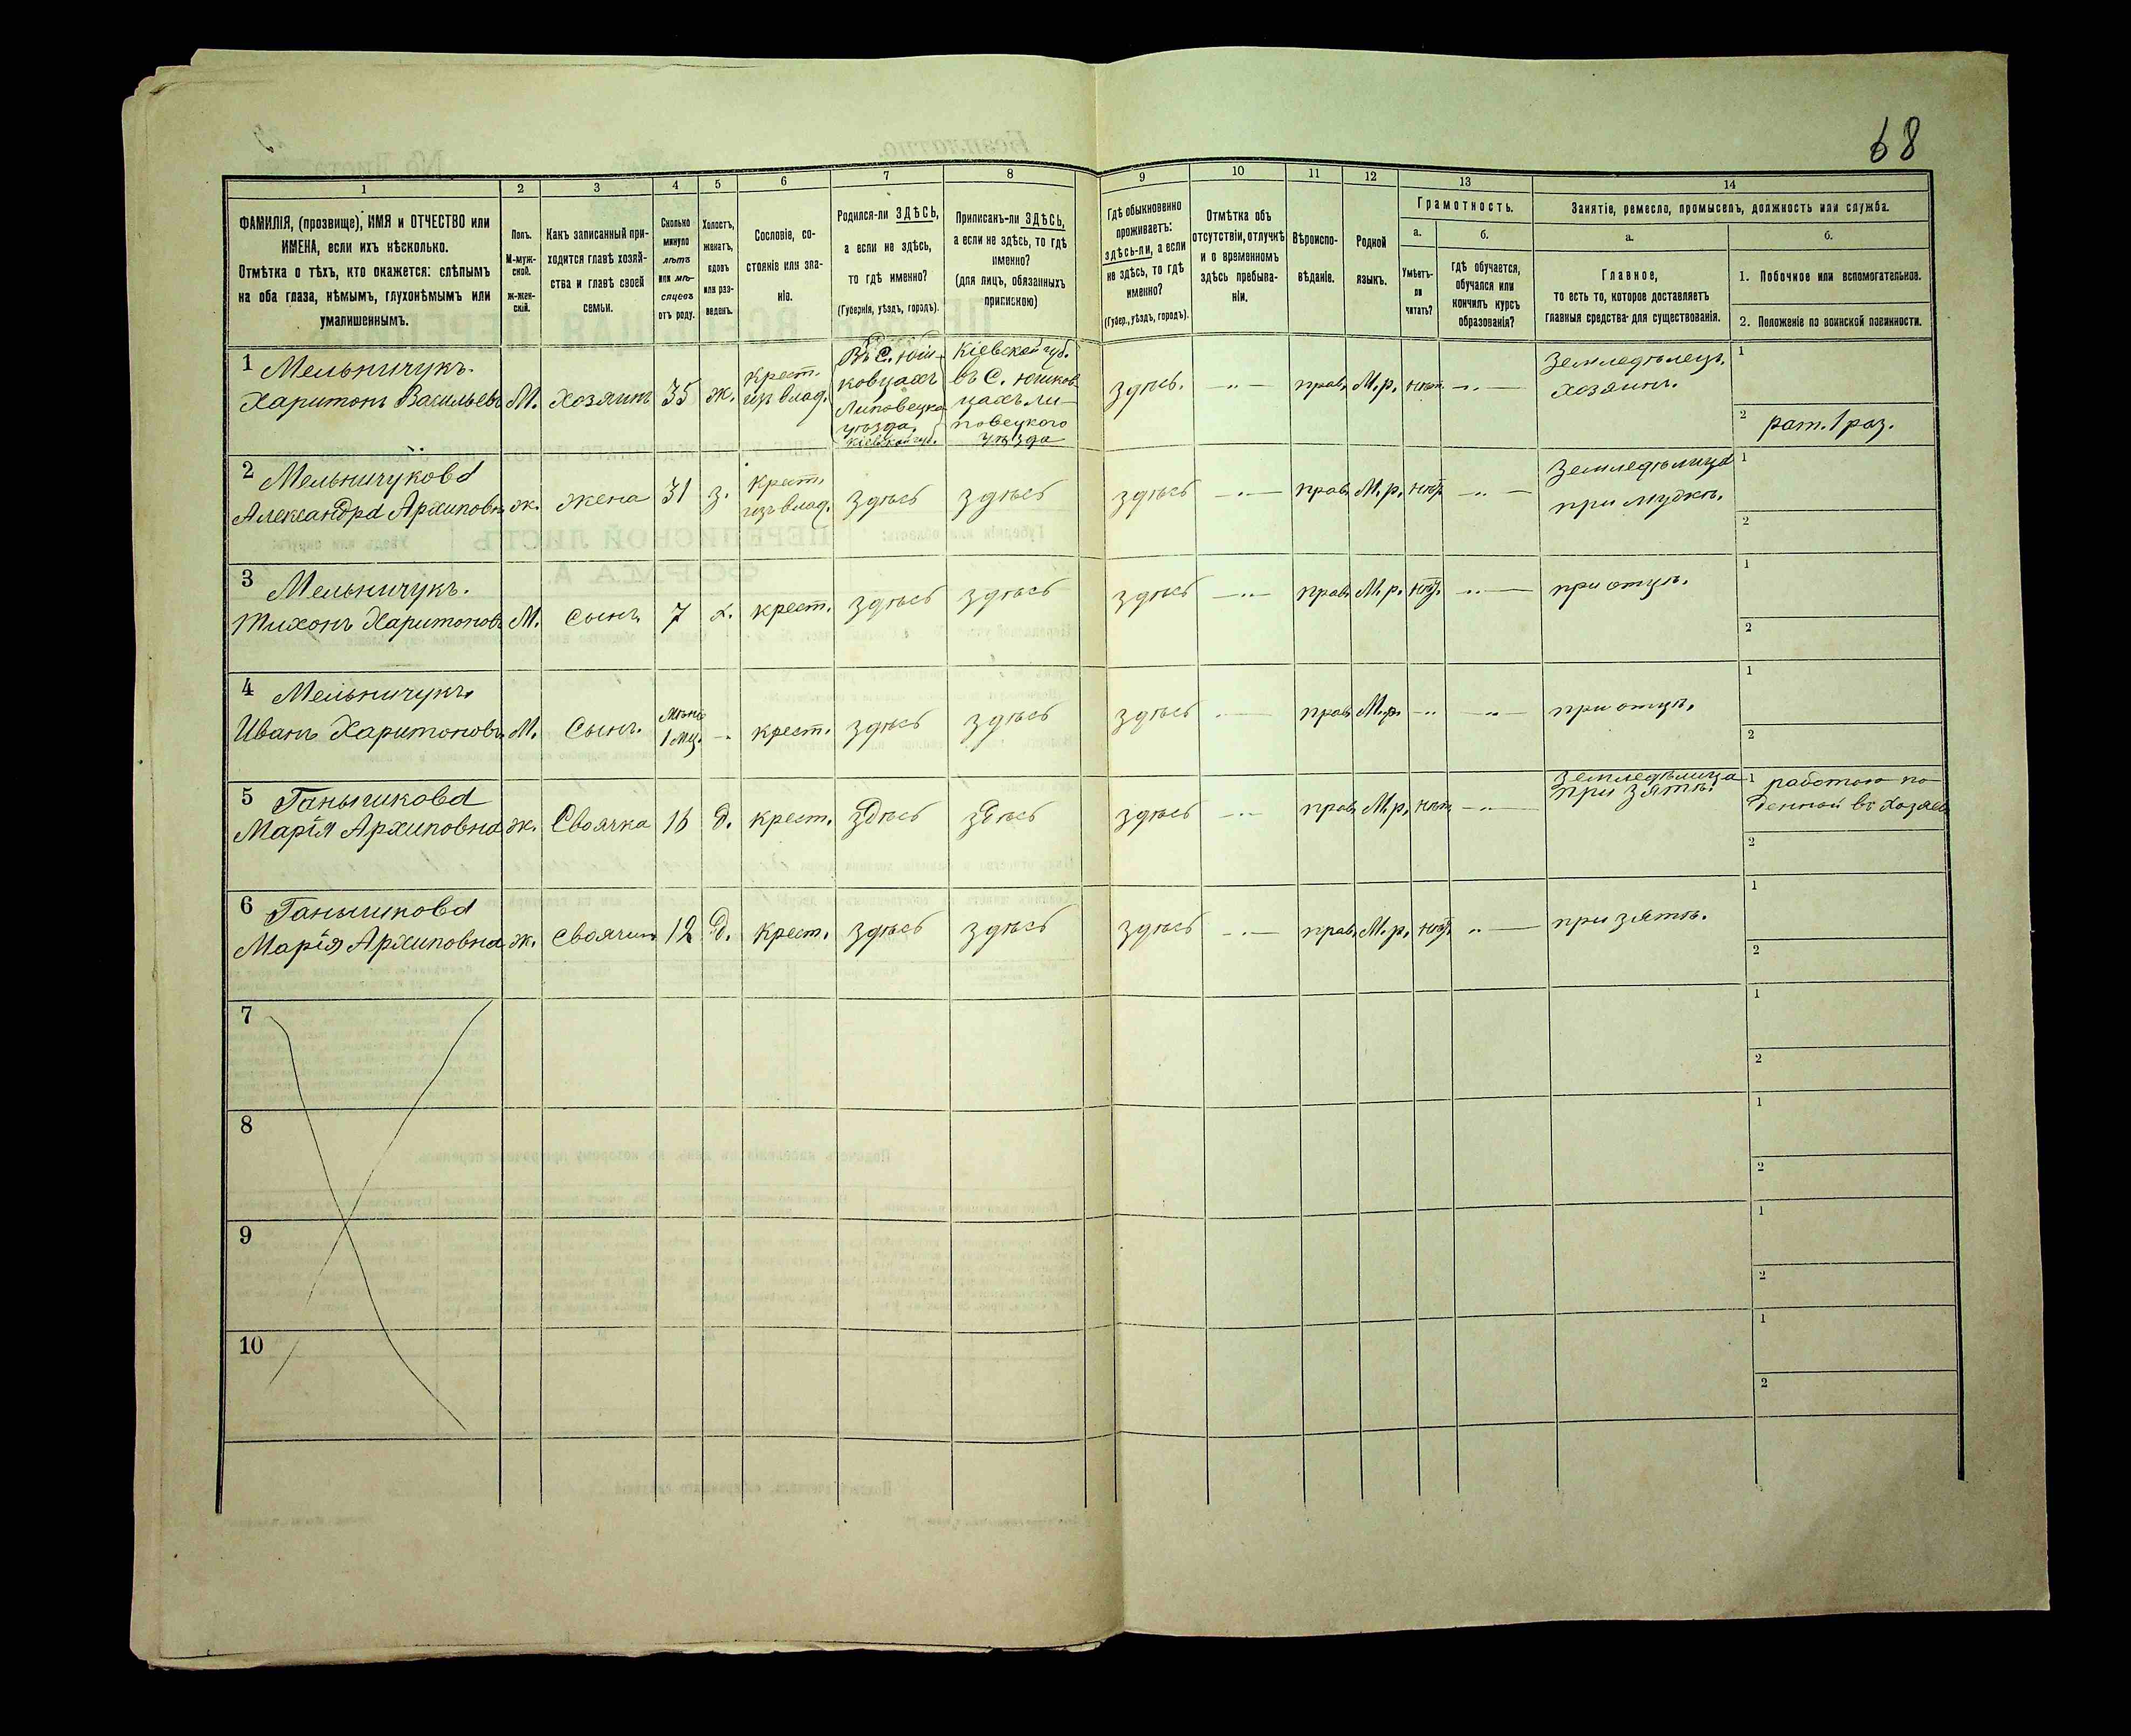 68
1
2
3
4
5
6
7
8
9
10
11
12
13
14
ФАМИЛІЯ, (прозвище), ИМЯ и ОТЧЕСТВО или
ИМЕНА, если ихъ нѣсколько.
Отмѣтка о тѣхъ, кто окажется: слѣпымъ
на оба глаза, нѣмымъ, глухонѣмымъ или
умалишеннымъ.
Полъ.
М-муж-
ской.
Ж-жен-
скій.
Какъ записанный при-
ходится главѣ хозяй-
ства и главѣ своей
семьи.
Сколько
минуло
лѣтъ
или мѣ-
сяцевъ
отъ роду.
Холостъ,
женатъ,
вдовъ
или раз-
веденъ.
Сословіе, со-
стояніе или зва-
ніе.
Родился-ли ЗДѢСЬ,
а если не здѣсь,
то гдѣ именно?
(Губернія, уѣздъ, городъ).
Приписанъ-ли ЗДѢСЬ,
а если не здѣсь, то гдѣ
именно?
(для лицъ, обязанныхъ
припискою)
Гдѣ обыкновенно
проживаетъ:
здѣсь-ли, а если
не здѣсь, то гдѣ
именно?
(Губер., уѣздъ, городъ).
Отмѣтка объ
отсутствіи, отлучкѣ
и о временномъ
здѣсь пребыва-
ніи.
Вѣроиспо-
вѣданіе.
Родной
языкъ.
Грамотность.
а.
Умѣетъ-
ли
читать?
б.
гдѣ обучается,
обучался или
кончилъ курсъ
образованія?
Занятіе, ремесло, промыселъ, должность или служба.
а.
Главное,
то есть то, которое доставляетъ
главныя средства для существованія.
б.
1. Побочное или вспомогательное.
2. Положеніе по воинской повинности.
1 Мельничукъ.
Харитонъ Васильевъ
М.
Хозяинъ
35
ж.
Крест.
изъ влад.
Въ С. Юш-
ковцахъ
Липовецка
уѣзда.
Кіевской губ.
Кіевской губ.
въ С. Юшков
цахъ Ли-
повецкого
Уѣзда
здѣсь.
— „ —
прав.
М. р.
нѣт.
— „ —
Земледѣлецъ,
хозяинъ.
1
2 рат. 1 раз.
2 Мельничукова
Александра Архиповн
ж.
жена
31
з.
Крест.
изъ влад.
здѣсь
здѣсь
здѣсь
— „ —
прав.
М. р.
нѣт.
— „ —
Земледѣлица
при мужѣ.
1
2
3 Мельничукъ.
Тихонъ Харитоновъ
М.
Сынъ
7
х.
крест.
здѣсь
здѣсь
здѣсь
— „ —
прав.
М. р.
нѣт.
„ —
при отцѣ.
1
2
4 Мельничукъ
Иванъ Харитоновъ
М.
Сынъ.
Менѣ
1 мц.
-
крест.
здѣсь
здѣсь
здѣсь
—
прав.
М. р.
— „
— „ —
при отцѣ.
1
2
5 Ганыкикова
Марія Архиповна
ж.
Своячка
16
д.
крест.
здѣсь
здѣсь
здѣсь
— „ —
прав.
М. р.
нѣт.
— „ —
Земледѣлица
при зятѣ.
1 работою по-
денной въ Хозяев
2
6 Ганыкикова
Марія Архиповна
ж.
своячин
12
д.
крест.
здѣсь
здѣсь
здѣсь
— „ —
прав.
М. р.
нѣт.
„ —
при зятѣ.
1
2
7
1
2
8
1
2
9
1
2
10
1
2